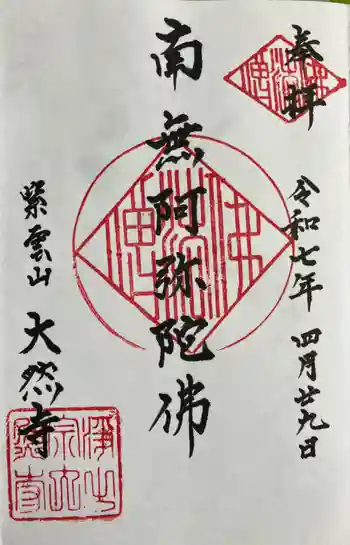 奉拝
令和七年 四月廿九日
南無阿弥陀佛
紫雲山
大然寺
佛法僧